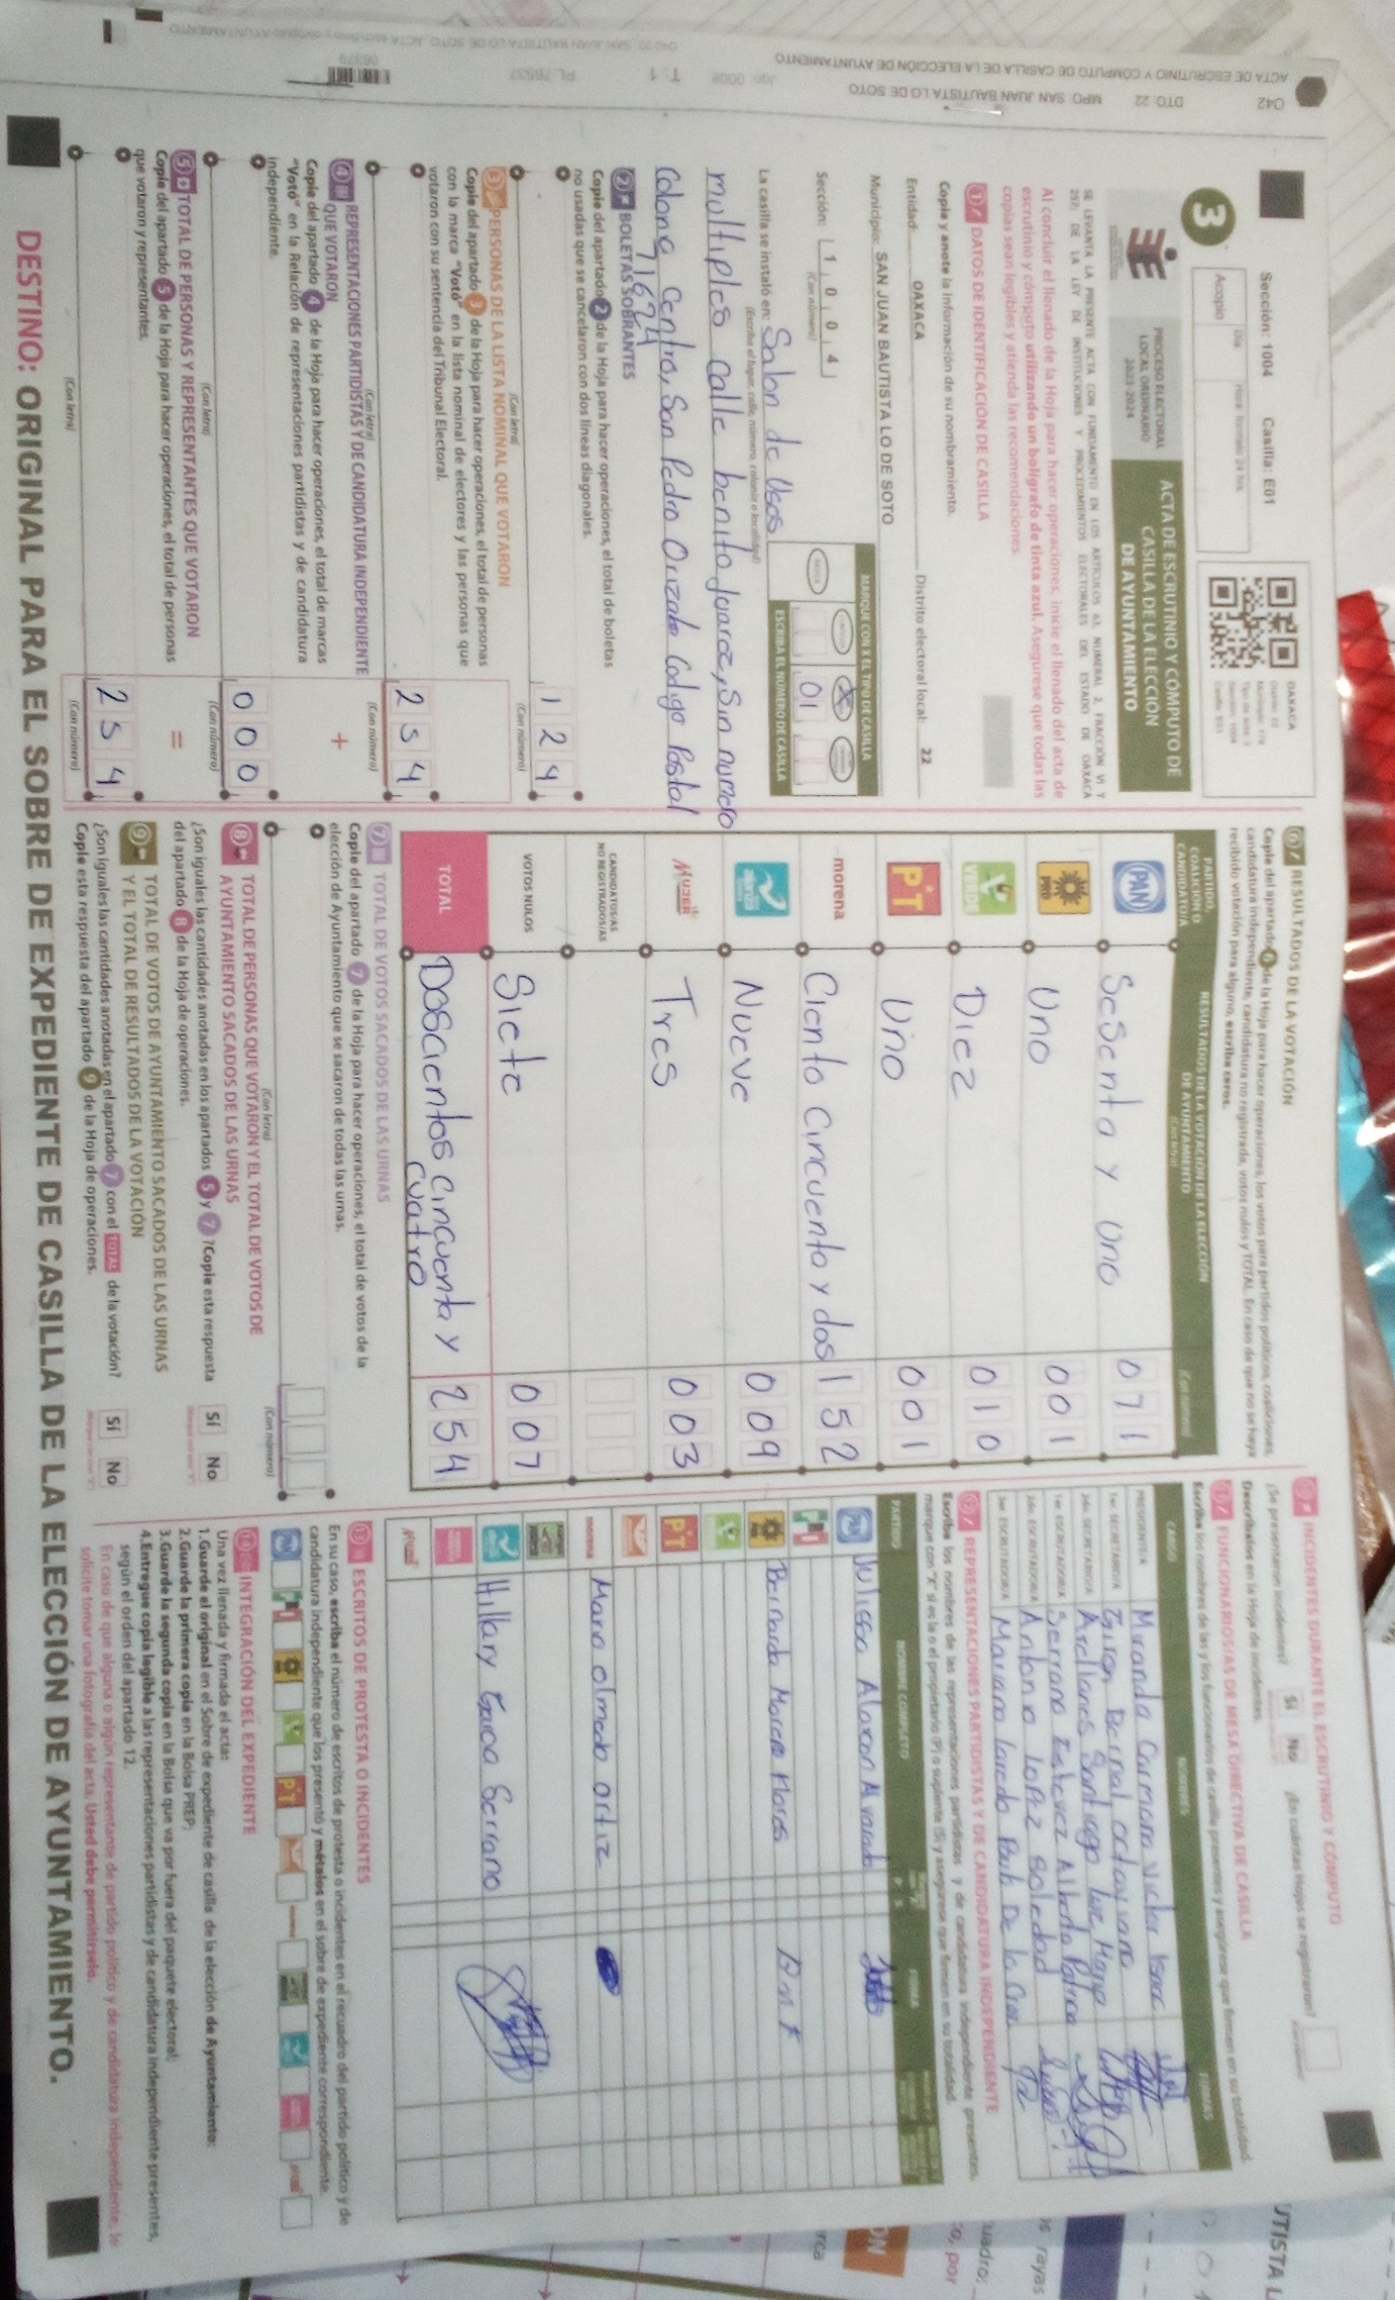 042 DTO: 22 MPO: SAN JUAN BAUTISTA LO DE SOTO
ACTA DE ESCRUTINIO Y CÓMPUTO DE CASILLA DE LA ELECCIÓN DE AYUNTAMIENTO
Sección: 1004 Casilla: E01
3
Acopio
Día
PROCESO ELECTORAL
LOCAL ORDINARIO
2023-2024
ACTA DE ESCRUTINIO Y CÓMPUTO DE
CASILLA DE LA ELECCIÓN
DE AYUNTAMIENTO
OAXACA
SE LEVANTA LA PRESENTE ACTA CON FUNDAMENTO EN LOS ARTÍCULOS 63, NUMERAL 2, FRACCIÓN VI Y
257; DE LA LEY DE INSTITUCIONES Y PROCEDIMIENTOS ELECTORALES DEL ESTADO DE OAXACA
Al concluir el llenado de la Hoja para hacer operaciones, inicie el llenado del acta de
escrutinio y cómputo utilizando un bolígrafo de tinta azul. Asegúrese que todas las
copias sean legibles y atienda las recomendaciones.
1 DATOS DE IDENTIFICACIÓN DE CASILLA
Copie y anote la información de su nombramiento.
Entidad: OAXACA Distrito electoral local: 22
Municipio: SAN JUAN BAUTISTA LO DE SOTO
MARQUE CON X EL TIPO DE CASILLA
Sección: 1 0 0 4
(Con número)
01
ESCRIBA EL NÚMERO DE CASILLA
La casilla se instaló en: Salon de Usos
multiples calle benito Juarez, Sin numero
Colona centro, San Pedro Orizaba Codigo Postal
71624
2 BOLETAS SOBRANTES
Copie del apartado 2 de la Hoja para hacer operaciones, el total de boletas
no usadas que se cancelaron con dos líneas diagonales.
1 2 4
(Con letra) (Con número)
3 PERSONAS DE LA LISTA NOMINAL QUE VOTARON
Copie del apartado 3 de la Hoja para hacer operaciones, el total de personas
con la marca "Votó" en la lista nominal de electores y las personas que
votaron con su sentencia del Tribunal Electoral.
2 5 4
(Con letra) (Con número)
4 REPRESENTACIONES PARTIDISTAS Y DE CANDIDATURA INDEPENDIENTE
QUE VOTARON +
Copie del apartado 4 de la Hoja para hacer operaciones, el total de marcas
"Votó" en la Relación de representaciones partidistas y de candidatura
independiente.
0 0 0
(Con letra) (Con número)
5 TOTAL DE PERSONAS Y REPRESENTANTES QUE VOTARON =
Copie del apartado 5 de la Hoja para hacer operaciones, el total de personas
que votaron y representantes.
2 5 4
(Con letra) (Con número)
6 RESULTADOS DE LA VOTACIÓN
Copie del apartado 6 de la Hoja para hacer operaciones, los votos para partidos políticos, coaliciones,
candidatura independiente, candidatura no registrada, votos nulos y TOTAL. En caso de que no se haya
recibido votación para alguno, escriba ceros.
PARTIDO, COALICIÓN O CANDIDATO/A
RESULTADOS DE LA VOTACIÓN DE LA ELECCIÓN
DE AYUNTAMIENTO
PAN Sesenta y Uno 071
PRD Uno 001
VERDE Diez 010
PT Uno 001
morena Ciento Cincuenta y dos 152
Nueve 009
MUJER Tres 003
CANDIDATOS/AS NO REGISTRADOS/AS
VOTOS NULOS Siete 007
TOTAL Dosaentos Cincuenta y cuatro 254
7 TOTAL DE VOTOS SACADOS DE LAS URNAS
Copie del apartado 7 de la Hoja para hacer operaciones, el total de votos de la
elección de Ayuntamiento que se sacaron de todas las urnas.
(Con letra) (Con número)
8 TOTAL DE PERSONAS QUE VOTARON Y EL TOTAL DE VOTOS DE
AYUNTAMIENTO SACADOS DE LAS URNAS
¿Son iguales las cantidades anotadas en los apartados 5 y 7? Copie esta respuesta
del apartado 8 de la Hoja de operaciones. Sí No
9 TOTAL DE VOTOS DE AYUNTAMIENTO SACADOS DE LAS URNAS
Y EL TOTAL DE RESULTADOS DE LA VOTACIÓN
¿Son iguales las cantidades anotadas en el apartado 7 con el TOTAL de la votación?
Copie esta respuesta del apartado 9 de la Hoja de operaciones. Sí No
INCIDENTES DURANTE EL ESCRUTINIO Y CÓMPUTO
¿Se presentaron incidentes? Sí No ¿En cuántas Hojas se registraron?
Descríbalos en la Hoja de incidentes.
FUNCIONARIOS/AS DE MESA DIRECTIVA DE CASILLA
Escriba los nombres de las y los funcionarios de casilla presentes y asegúrese que firmen en su totalidad.
CARGO NOMBRES FIRMAS
Miranda Carmona Victor Isaac
Giron Bernal octaviano
Arellanes Santiago Luz Mayra
Serrano Estevez Alberta Patricia
Antonio lopez soledad
Mariano laredo Ruth De la Cruz
12 REPRESENTACIONES PARTIDISTAS Y DE CANDIDATURA INDEPENDIENTE
Escriba los nombres de las representaciones partidistas y de candidatura independiente presentes,
marque con "X" si es la o el propietario (P) o suplente (S) y asegúrese que firmen en su totalidad.
PARTIDO NOMBRE COMPLETO P S FIRMA
PAN Julissa Alarcon Alvarado
PRI
PRD Bernardo Marcos Flores
PT
morena Maria olmedo ortiz
Hillary Garcia Serrano
13 ESCRITOS DE PROTESTA O INCIDENTES
En su caso, escriba el número de escritos de protesta o incidentes en el recuadro del partido político y de
candidatura independiente que los presentó y métalos en el sobre de expediente correspondiente.
14 INTEGRACIÓN DEL EXPEDIENTE
Una vez llenada y firmada el acta:
1.Guarde el original en el Sobre de expediente de casilla de la elección de Ayuntamiento;
2.Guarde la primera copia en la Bolsa PREP;
3.Guarde la segunda copia en la Bolsa que va por fuera del paquete electoral;
4.Entregue copia legible a las representaciones partidistas y de candidatura independiente presentes,
según el orden del apartado 12.
En caso de que alguna o algún representante de partido político y de candidatura independiente, le
solicite tomar una fotografía del acta. Usted debe permitírselo.
DESTINO: ORIGINAL PARA EL SOBRE DE EXPEDIENTE DE CASILLA DE LA ELECCIÓN DE AYUNTAMIENTO.